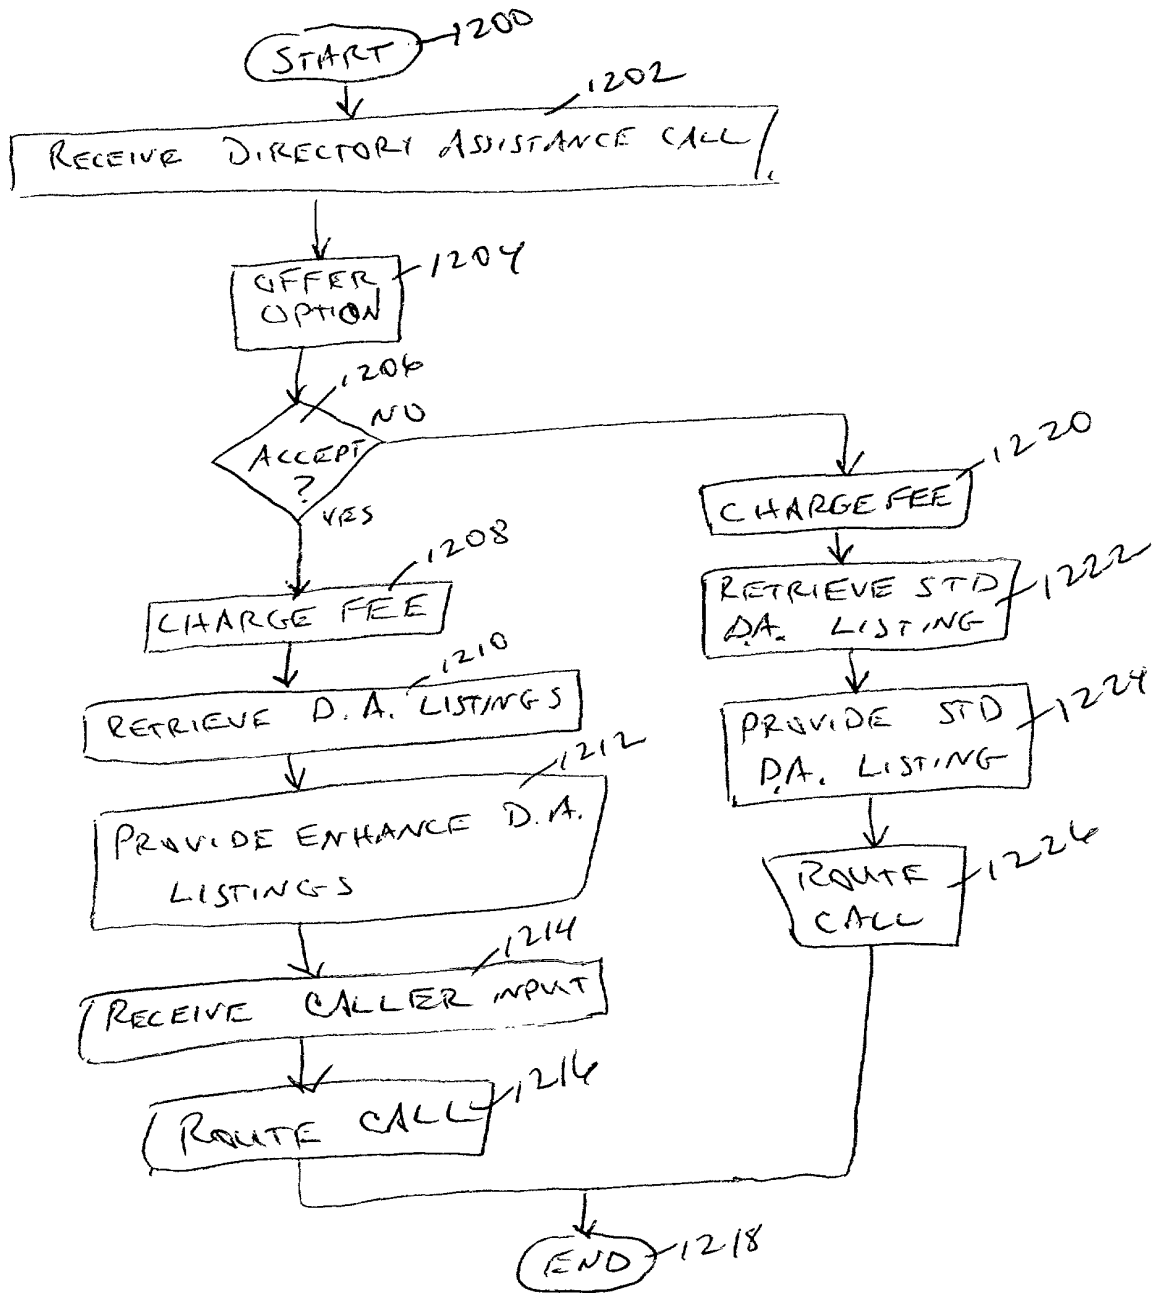 START
1200
1202
RECEIVE DIRECTORY ASSISTANCE CALL
1204
OFFER
OPTION
1206
NO
ACCEPT
?
YES
1208
CHARGE FEE
1210
RETRIEVE D.A. LISTINGS
1212
PROVIDE ENHANCE D.A.
LISTINGS
1214
RECEIVE CALLER INPUT
1216
ROUTE CALL
1220
CHARGE FEE
1222
RETRIEVE STD
D.A. LISTING
1224
PROVIDE STD
D.A. LISTING
1226
ROUTE
CALL
END
1218